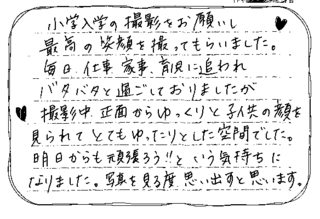 小学入学の撮影をお願いし
最高の笑顔を撮ってもらいました。
毎日 仕事 家事 育児に追われ
バタバタと過ごしておりましたが
撮影中 正面からゆっくりと子供の顔を
見られて とてもゆったりとした空間でした。
明日からも頑張ろう!! という気持ちに
なりました。写真を見る度 思い出すと思います。